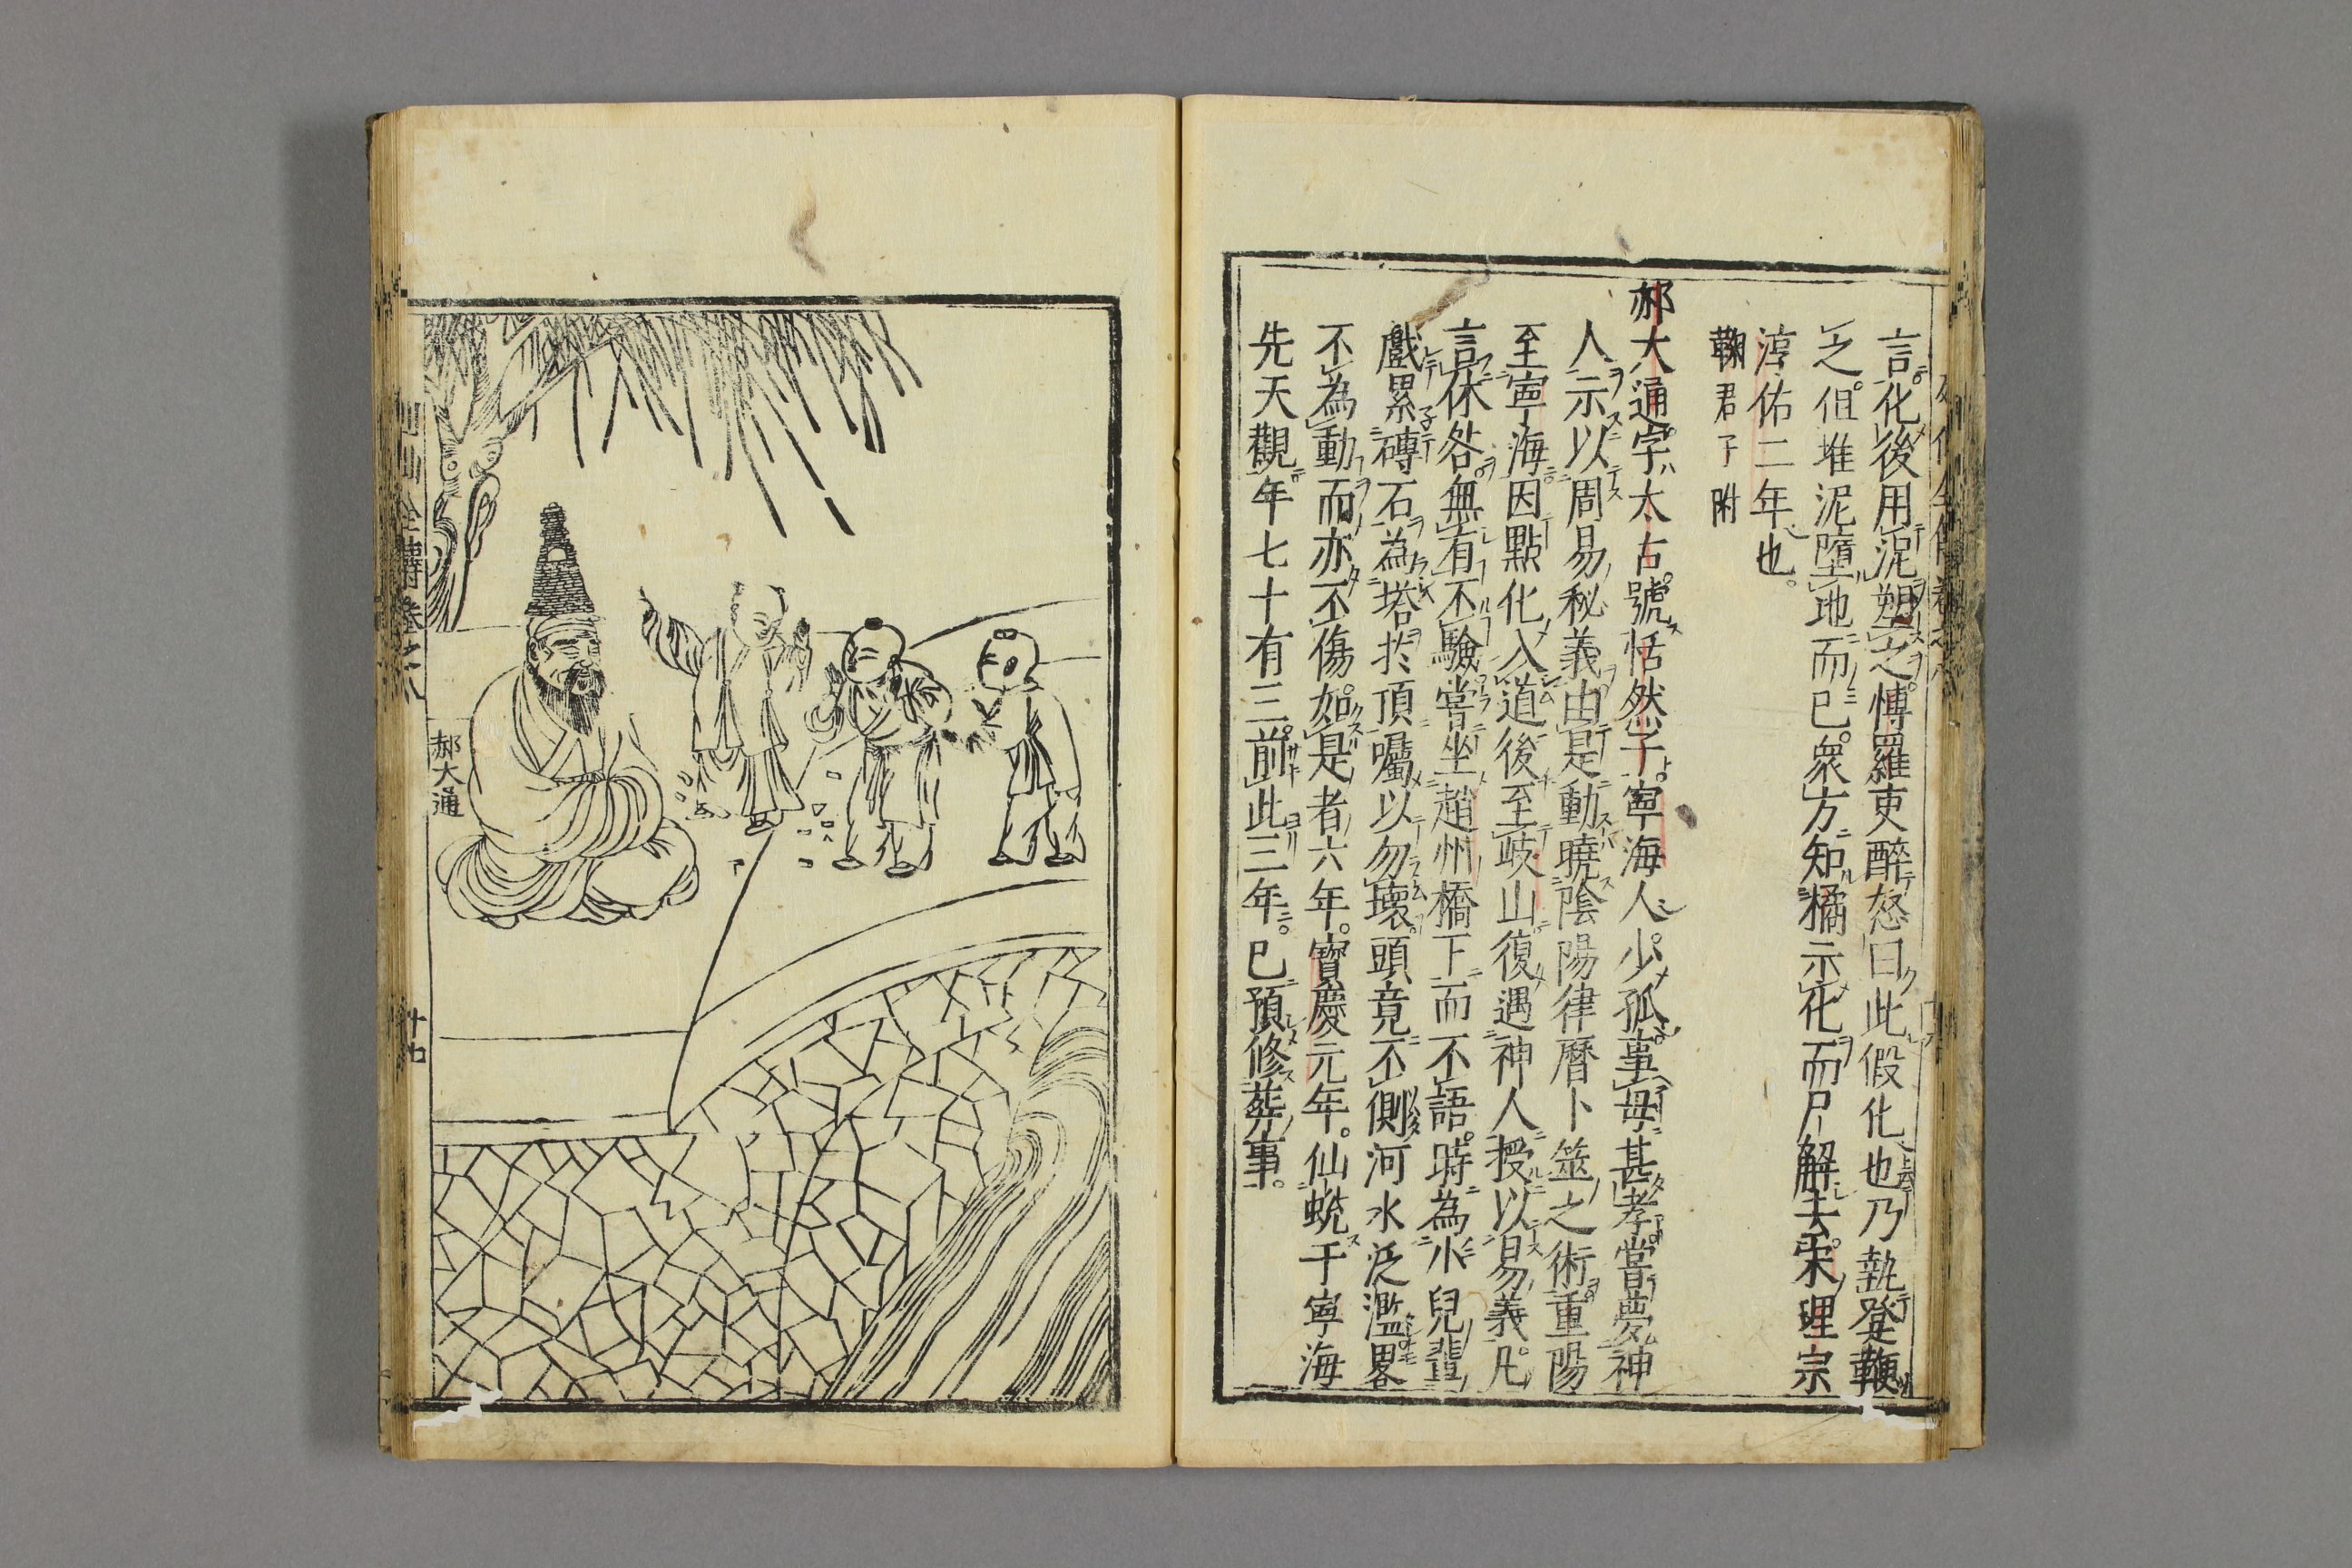 言化後用泥塑之博羅吏醉怒曰此假化也乃執登鞭
之但堆泥墮地而已衆方知橘示化而尸解去宋理宗
淳佑二年也。
鞠君子附
郝大通字太古號恬然子寧海人少孤事母甚孝嘗夢神
人示以周易秘義由是動曉陰陽律曆卜筮之術重陽
至寧海因點化入道後至岐山復遇神人授以易義凡
言休咎無有不驗嘗坐趙州橋下而不語時為小兒輩
戲累磚石為塔於頂囑以勿壞頭竟不側河水泛濫畧
不為動而亦不傷如是者六年。寶慶元年。仙蛻于寧海
先天觀年七十有三前此三年。已預修葬事。
郝大通
仙全傳卷之八
十七